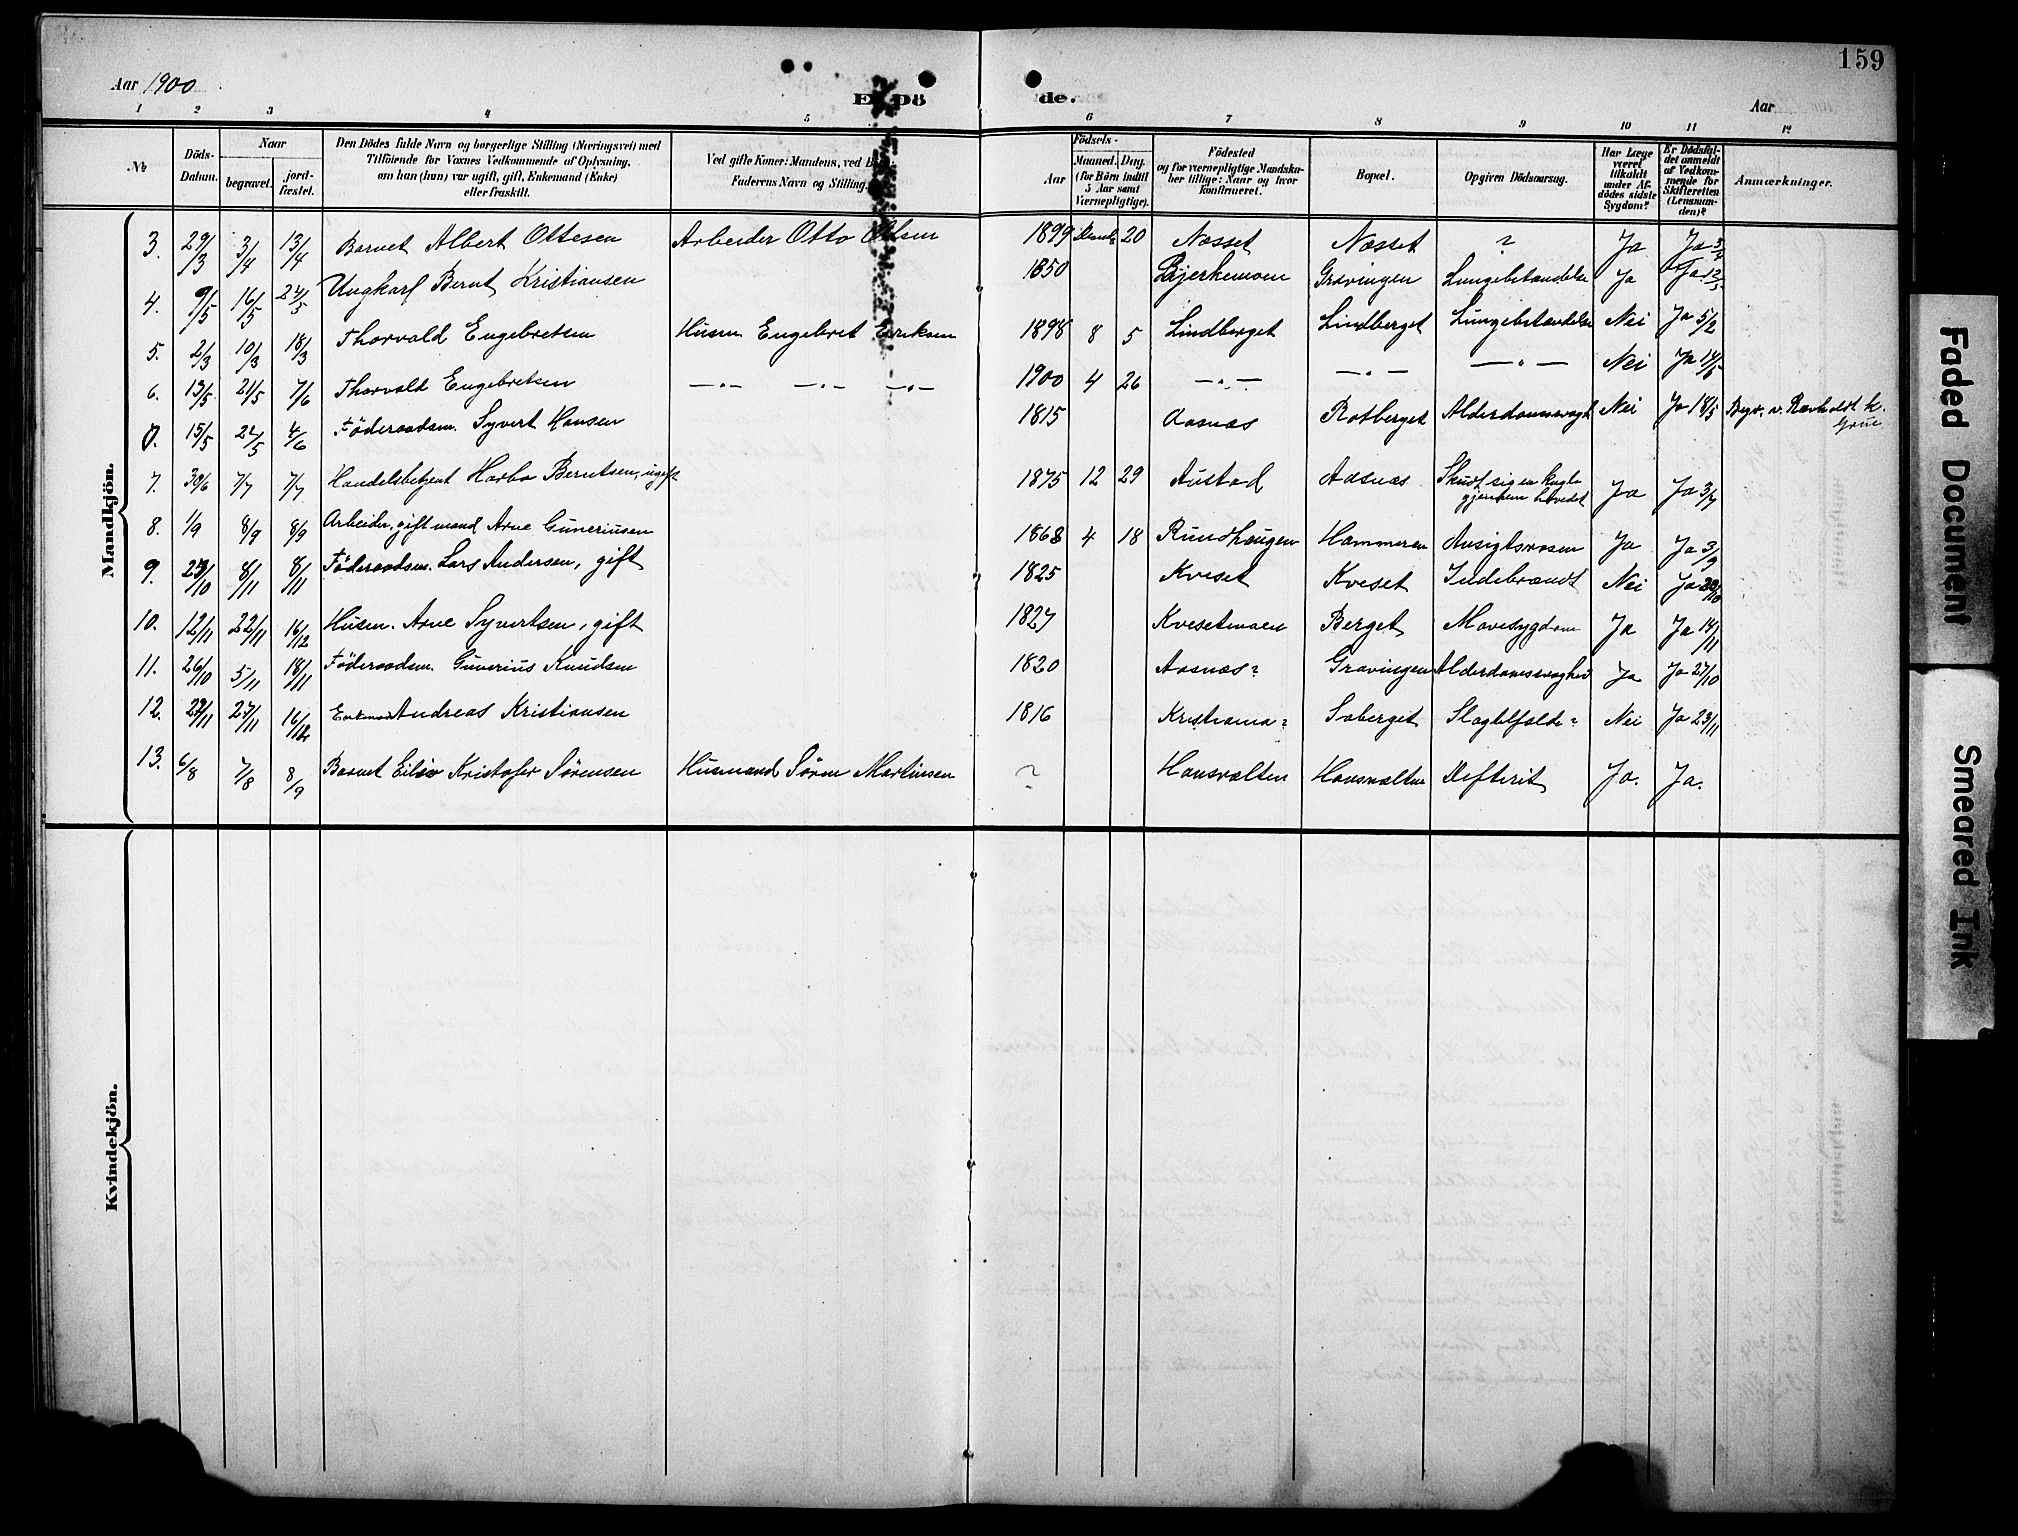 159
Aar 1900
Dö de.
Aar
1 2 3 4 5 6 7 8 9 10 11 12
No
Döds-Datum.
Naar
begravet.
jordfæstet.
Den Dödes fulde Navn og borgerlige Stilling (Næringsvei) med
Tilföiende for Voxnes Vedkommende af Oplysning,
om han (hun) var ugift, gift, Enkemand (Enke)
eller fraskilt.
Ved gifte Koner: Mandens, ved Børn:
Faderens Navn og Stilling.
Födsels-
Aar
Maaned. Dag.
(for Börn indtil
5 Aar samt
Værnepligtige).
Födested
og for værnepligtige Mandskaber tillige: Naar og hvor
konfirmeret.
Bopæl.
Opgiven Dödsaarsag.
Har Læge
været
tilkaldt
under Afdödes sidste
Sygdom?
Er Dödsfaldet anmeldt
af Vedkommende for
Skifteretten
(Lensmanden)?
Anmærkninger.
Mandkjön.
3. 29/3 3/4 13/4 Barnet Albert Ottesen Arbeider Otto Olsen 1899 20 Næsset Næsset ? Ja Ja 3/4
4. 9/5 16/5 24/5 Ungkarl Bernt Kristiansen 1850 Bjerkemoen Gravingen Lungebetændelse Ja Ja 12/5
5. 2/3 10/3 18/3 Thorvald Engebretsen Husm. Engebret Eriksen 1898 8 5 Lindberget Lindberget Lungebetændelse Nei Ja 5/2
6. 13/5 21/5 7/6 Thorvald Engebretsen —"— —"— —"— 1900 4 26 —"— —"— —"— Nei Ja 14/5
0. 15/5 22/5 4/6 Föderaadsm. Syvert Hansen 1815 Aasnæs Rotberget Alderdomssvagh Nei Ja 18/5 Begr. v. Revholdt k. Grue
7. 30/6 7/7 7/7 Handelsbetjent Harbo Berntsen, ugift 1875 12 29 Austad Aasnæs Skudt sig en kugle gjennem hovedet Ja Ja 3/7
8. 1/9 8/9 8/9 Arbeider, gift mand Arne Guneriusen 1868 4 18 Rundhaugen Hammeren Ansigtsrosen Ja Ja 3/9
9. 23/10 8/11 8/11 Föderaadsm. Lars Andersen, gift 1825 Kveset Kveset Indebrandt Nei Ja
10. 12/11 22/11 16/12 Husm. Arne Syvertsen, gift 1827 Kvesetmoen Berget Mavesygdom Ja Ja 14/11
11. 26/10 5/11 18/11 Föderaadsm. Guverius Knudsen 1820 Aasnæs? Gravingen Alderdomssvaghed Ja Ja 27/10
12. 22/11 27/11 16/12 Enkemand Andreas Kristiansen 1816 Kristiania? Soberget Slagtilfælde? Nei Ja 23/11
13. 6/8 7/8 8/9 Barnet Eiliv Kristofer Sörensen Husmand Sören Martinsen ? Hansvælten Hansvælten Defterit Ja. Ja.
Kvindekjön.
Faded Document
Smeared Ink